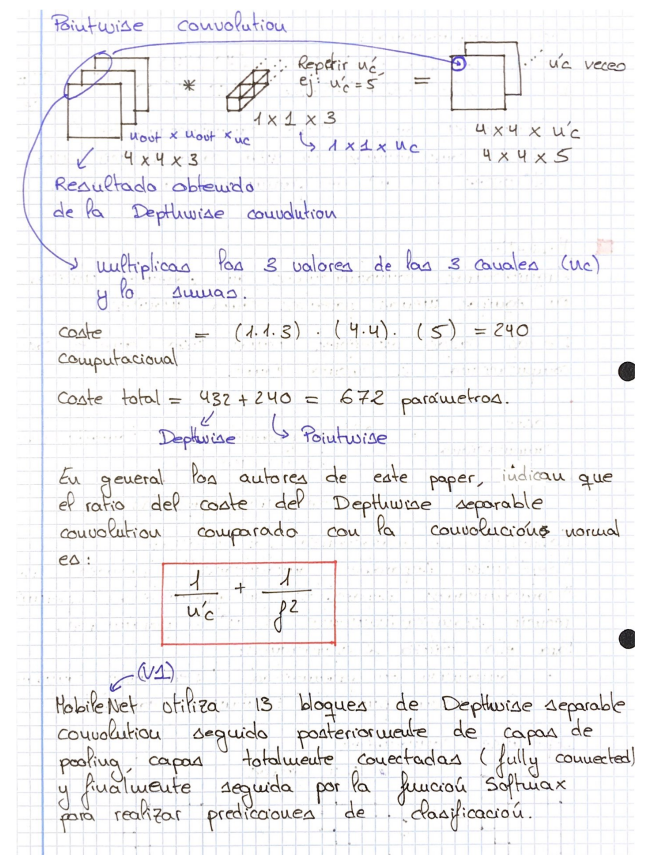 Pointwise convolution
Repetir n'c
ej: n'c = 5
n'c veces
*
=
1 x 1 x 3
1 x 1 x nc
nout x nout x nc
4 x 4 x 3
4 x 4 x n'c
4 x 4 x 5
Resultado obtenido
de la Depthwise convolution
multiplicas los 3 valores de los 3 canales (nc)
y lo sumas.
coste = (1.1.3) . (4.4). (5) = 240
computacional
Coste total = 432 + 240 = 672 parámetros.
Depthwise Pointwise
En general los autores de este paper, indican que
el ratio del coste del Depthwise separable
convolution comparado con la convolución normal
es:
1/n'c + 1/f²
(V1)
MobileNet utiliza 13 bloques de Depthwise separable
convolution seguido posteriormente de capas de
pooling, capas totalmente conectadas (fully connected)
y finalmente seguida por la función Softmax
para realizar predicciones de clasificación.